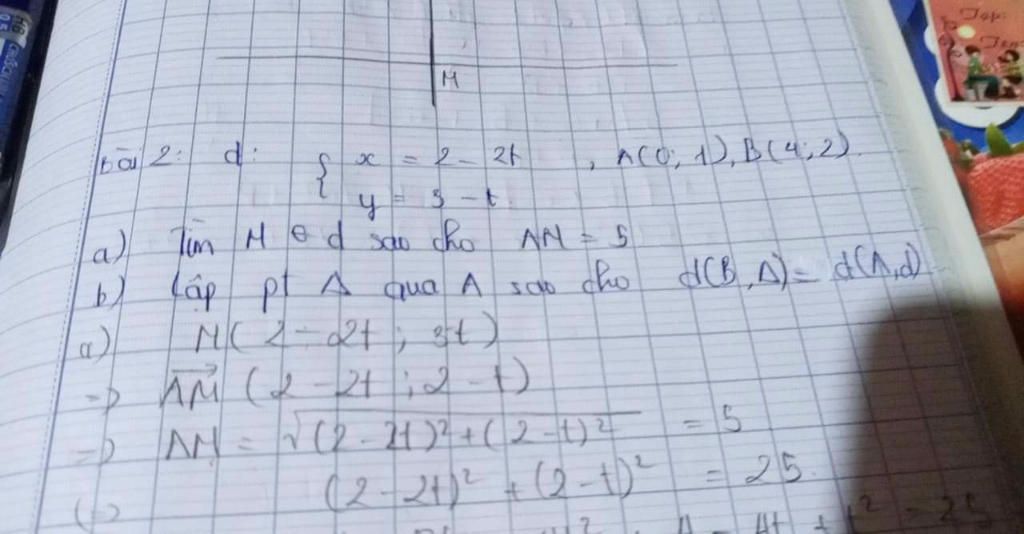 M
Bài 2: d: { x = 2 - 2t , A(0; 1), B(4; 2).
y = 3 - t
a) Tìm M ∈ d sao cho AM = 5
b) Lập pt Δ qua A sao cho d(B, Δ) = d(A, d)
a) M(2 - 2t ; 3t)
=> AM (2 - 2t ; 2 - t)
=> AM = √(2 - 2t)² + (2 - t)² = 5
(=> (2 - 2t)² + (2 - t)² = 25.
4t + t² = 25